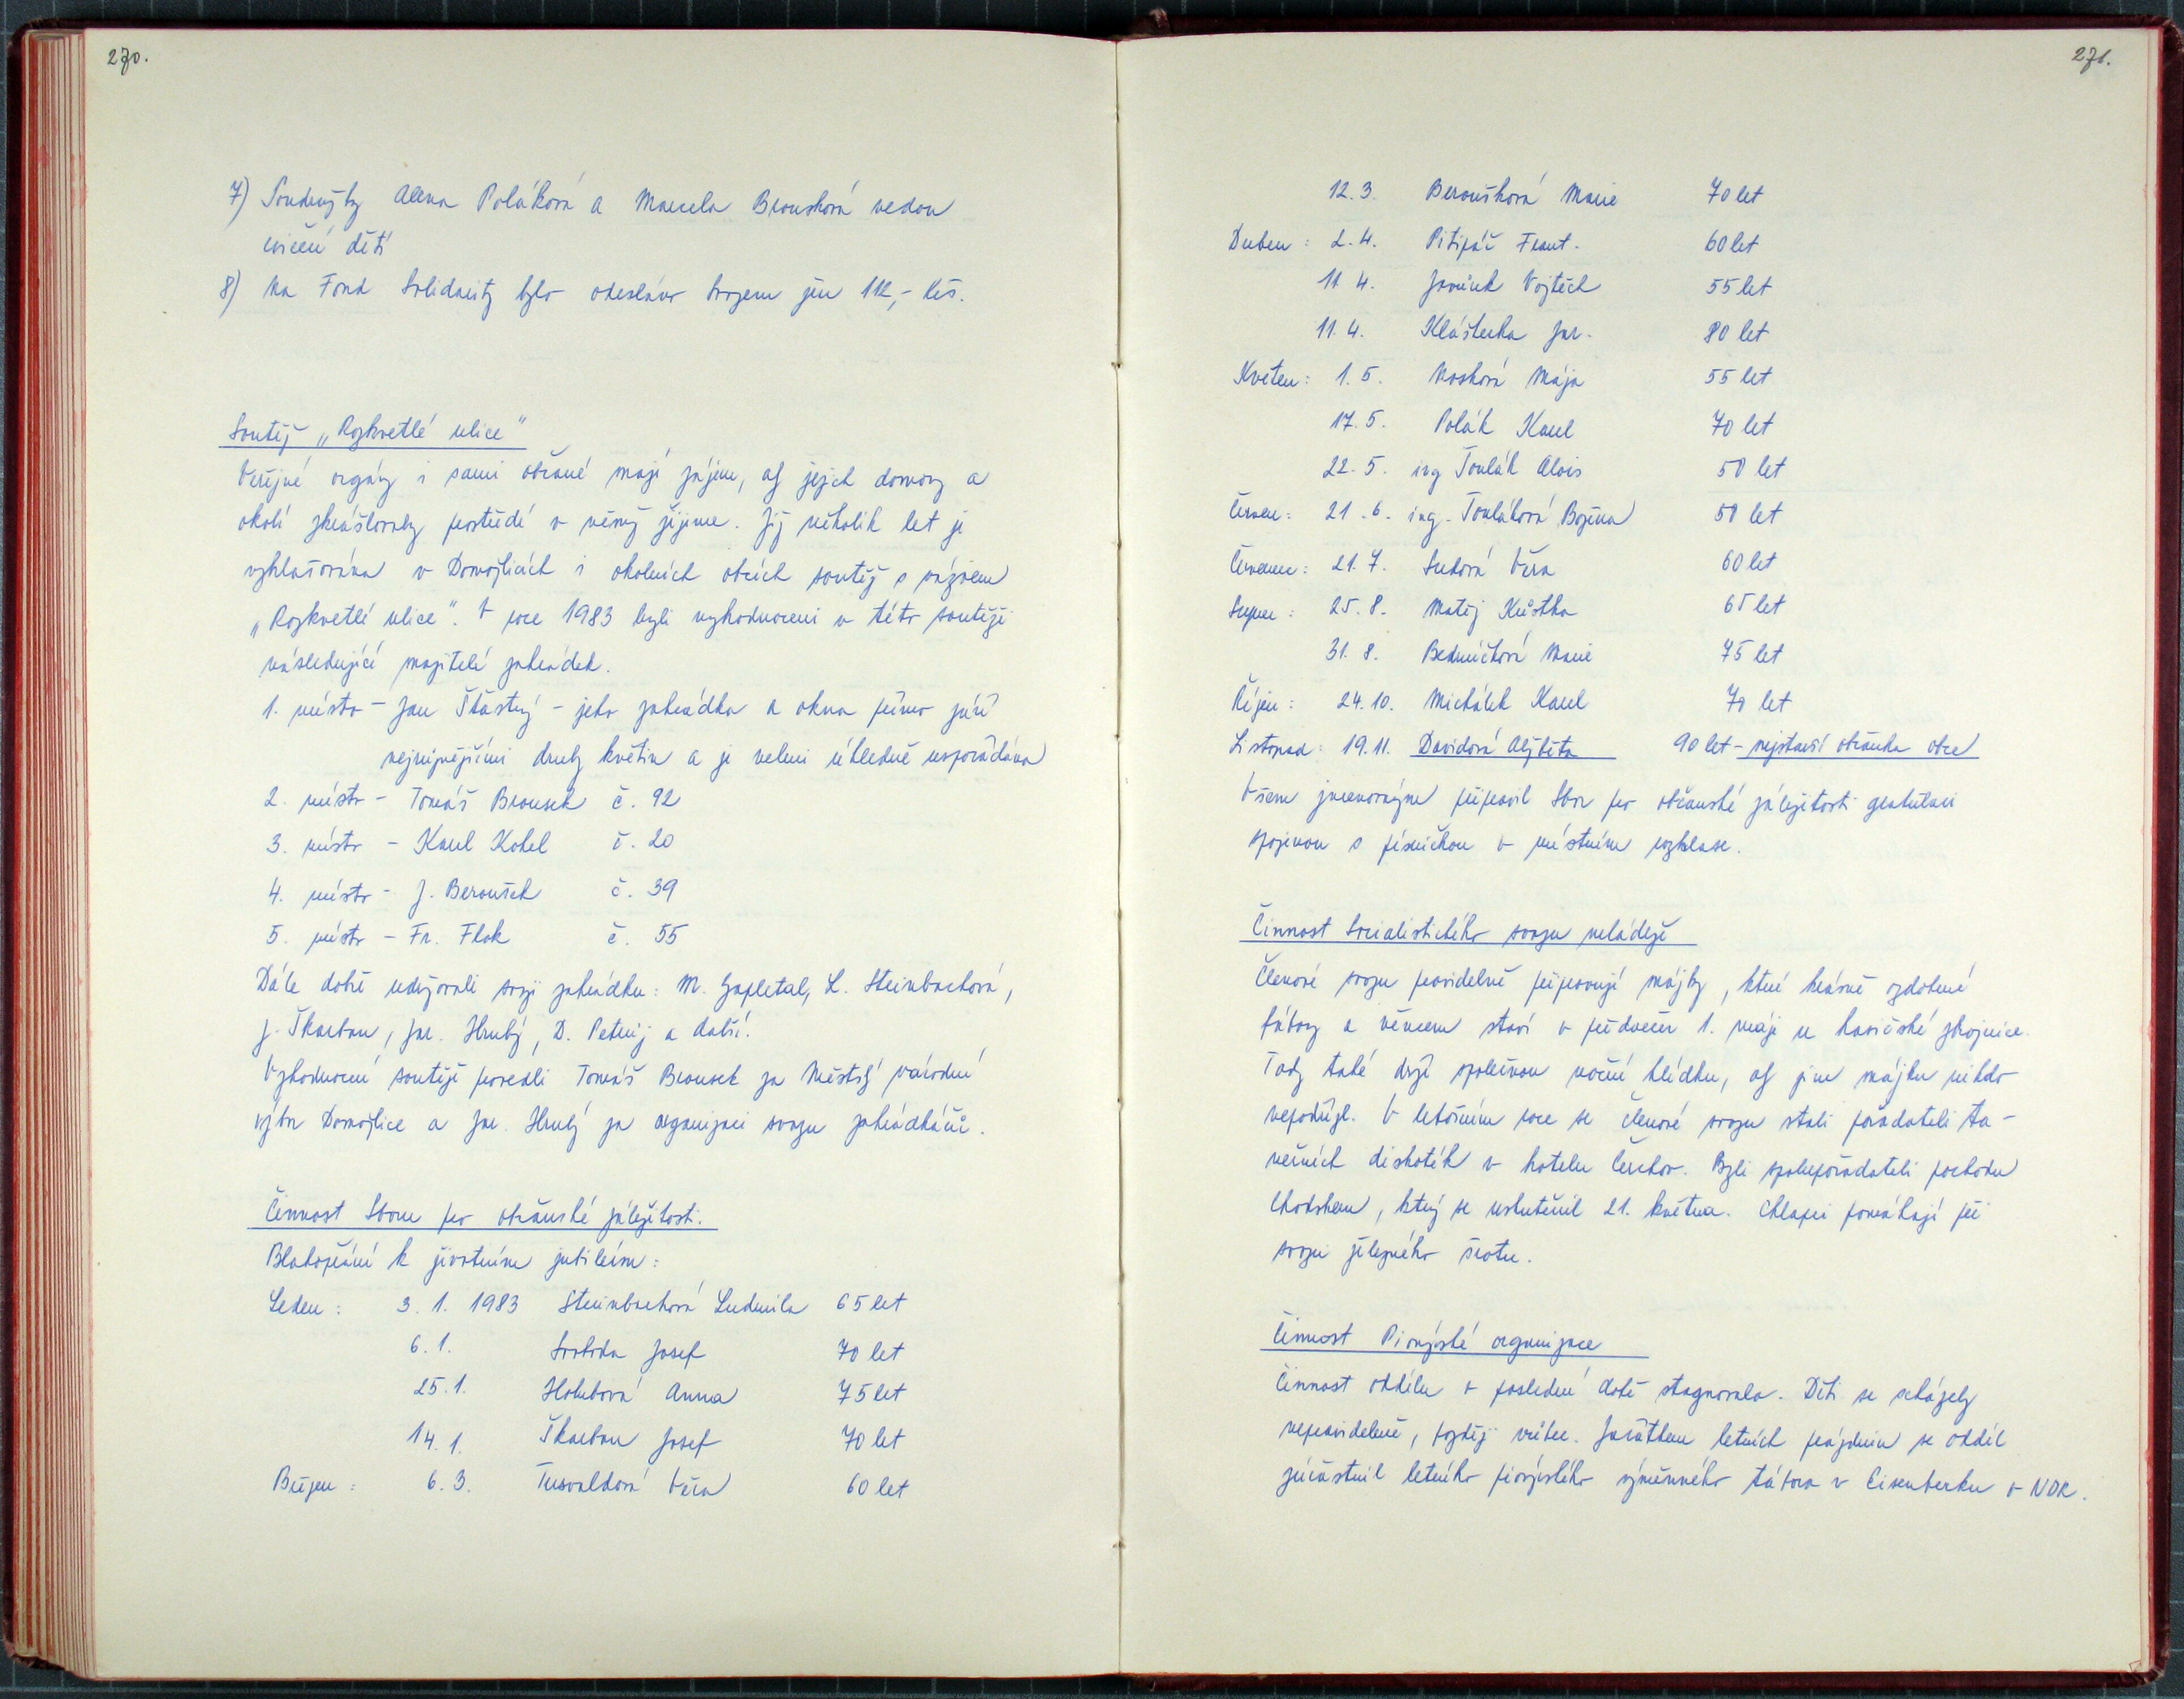 270.
7) Soudružky Alena Poláková a Marcela Brousková vedou
cvičení dětí
8) Na Fond Solidarity bylo odesláno svazem žen 112,- Kčs.
Soutěž „Rozkvetlé ulice"
Veřejné orgány i sami občané mají zájem, ať jejich domovy a
okolí zkrášlovaly prostředí v němž žijeme. Již několik let je
vyhlašována v Domažlicích i okolních obcích soutěž s názvem
„Rozkvetlé ulice". V roce 1983 byli vyhodnoceni v této soutěži
následující majitelé zahrádek.
1. místo - Jan Šťastný - jeho zahrádka a okna přímo září
nejrůznějšími druhy květin a je velmi úhledně uspořádána
2. místo - Tomáš Brousek č. 92
3. místo - Karel Kohel č. 20
4. místo - J. Beroušek č. 39
5. místo - Fr. Flok č. 55
Dále dobře udržovali svoji zahrádku: M. Zapletal, L. Steinbachová,
J. Škarban, Jar. Hrubý, D. Petružj a další.
Vyhodnocení soutěže provedli Tomáš Brousek za Městský národní
výbor Domažlice a Jar. Hrubý za organizaci svazu zahrádkářů.
Činnost Sboru pro občanské záležitosti.
Blahopřání k životním jubileím:
Leden: 3. 1. 1983 Steinbachová Ludmila 65 let
6. 1. Svoboda Josef 70 let
25. 1. Holubová Anna 75 let
14. 1. Škarban Josef 70 let
Březen: 6. 3. Věra 60 let
271.
12. 3. Beroušková Marie 70 let
Duben: 2. 4. Pitipáč Frant. 60 let
11. 4. Vojtěch 55 let
11. 4. Klášterka Jar. 80 let
Květen: 1. 5. Nosková Mája 55 let
17. 5. Polák Karel 70 let
22. 5. ing Toulák Alois 50 let
Červen: 21. 6. ing. Touláková Božena 50 let
Červenec: 21. 7. Sudová Věra 60 let
Srpen: 25. 8. Matěj Křístka 65 let
31. 8. Bedničková Marie 75 let
Říjen: 24. 10. Michálek Karel 70 let
Listopad: 19. 11. Davidová Alžběta 90 let - nejstarší občanka obce
Všem jmenovaným připravil Sbor pro občanské záležitosti gratulaci
spojenou s písničkou v místním rozhlase.
Činnost Socialistického svazu mládeže
Členové svazu pravidelně připravují májky, které krásně ozdobené
fábory a věncem staví v předvečer 1. máje u hasičské zbrojnice.
Tady také drží společnou noční hlídku, ať jim májku nikdo
nepodřízl. V letošním roce se členové svazu stali pořadateli ta-
nečních diskoték v hotelu Čerchov. Byli spolupořadateli pochodu
Chodskem, který se uskutečnil 21. května. Chlapci pomáhají při
svozu železného šrotu.
Činnost Pionýrské organizace
Činnost oddílu v poslední době stagnovala. Děti se scházely
nepravidelně, později vůbec. Začátkem letních prázdnin se oddíl
zúčastnil letního pionýrského výměnného tábora v Eisenberku v NDR.